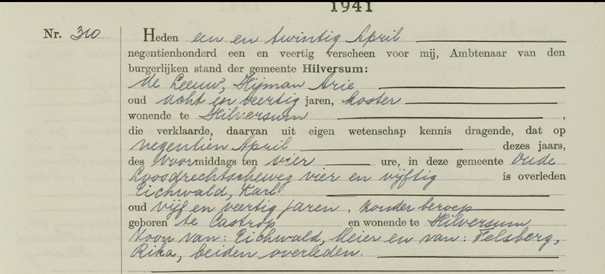 1941
Nr. 310 Heden een en twintig April
negentienhonderd een en veertig verscheen voor mij, Ambtenaar van den
burgerlijken stand der gemeente Hilversum:
de Leeuw, Hijman Arie
oud acht en veertig jaren, koster
wonende te Hilversum ,
die verklaarde, daarvan uit eigen wetenschap kennis dragende, dat op
negentien April dezes jaars,
des voormiddags ten vier ure, in deze gemeente Oude
Loosdrechtscheweg vier en vijftig is overleden
Eichwald, Karl
oud vijf en veertig jaren, zonder beroep
geboren te Castrop en wonende te Hilversum
zoon van: Eichwald, Meier en van: Felsberg,
Rika, beiden overleden.